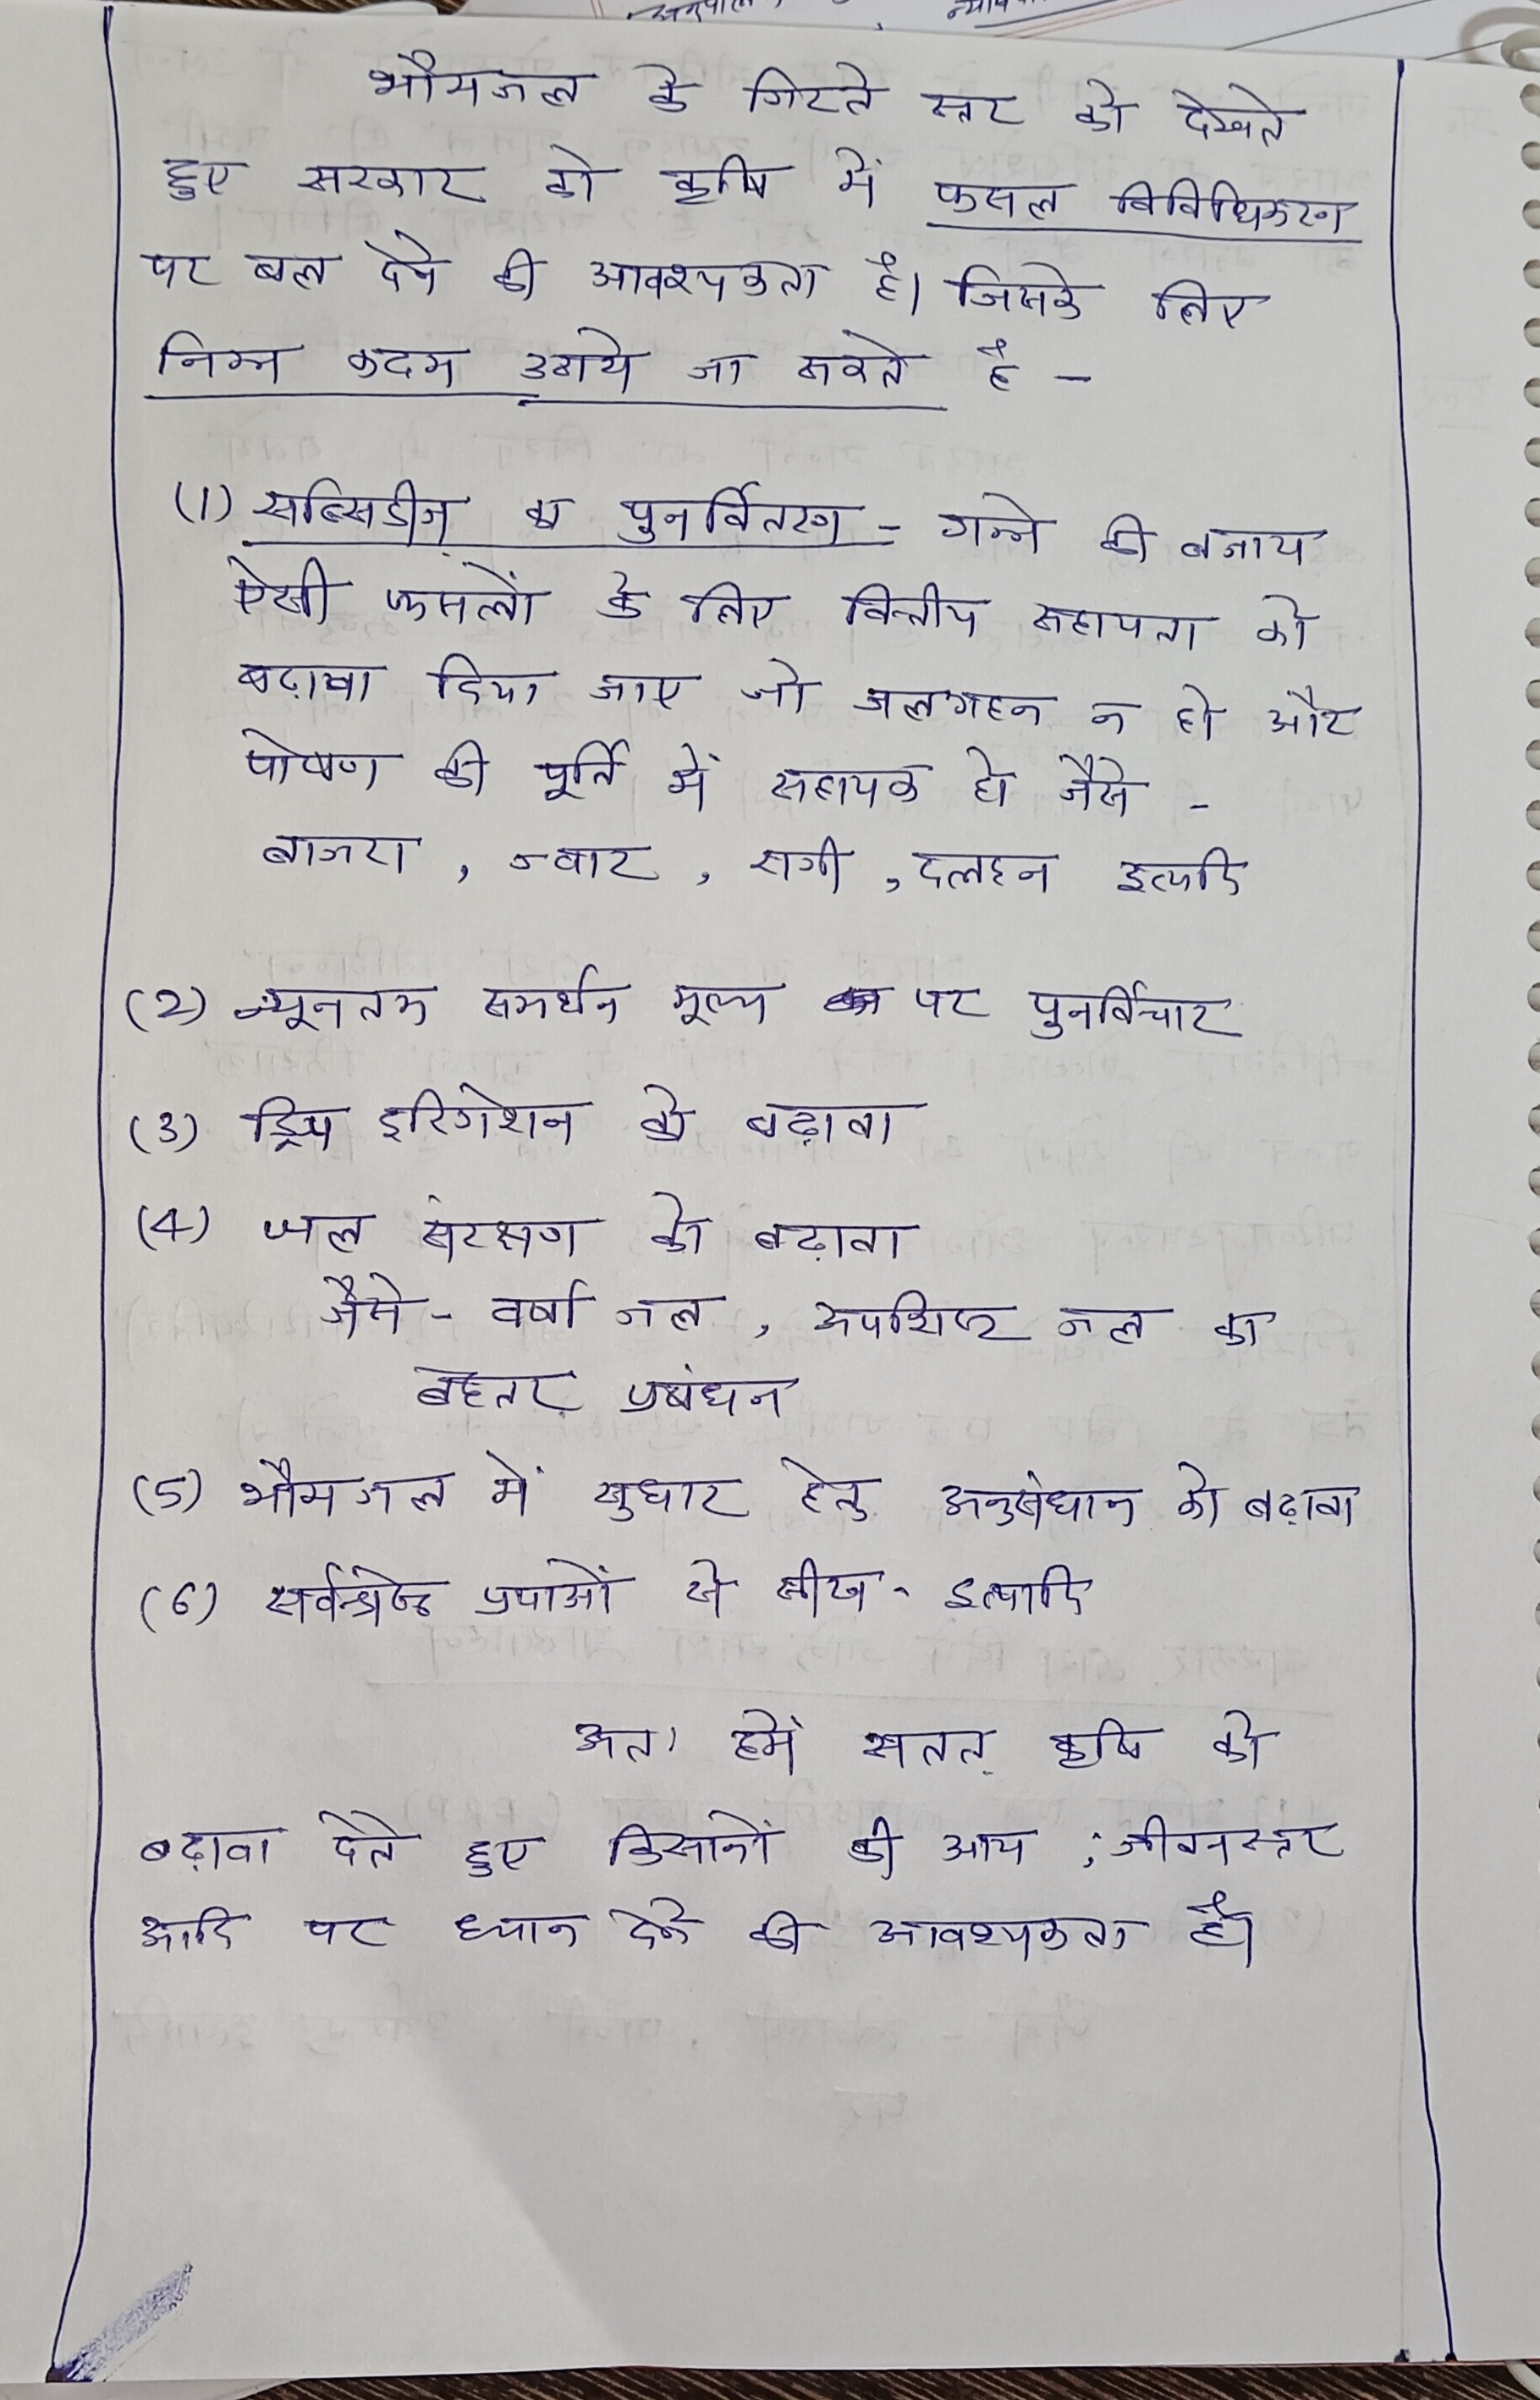 भौमजल के गिरते स्तर को देखते
हुए सरकार को कृषि में फसल विविधिकरण
पर बल देने की आवश्यकता है। जिसके लिए
निम्न कदम उठाये जा सकते है -
(1) सब्सिडीज़ का पुनर्वितरण - गन्ने की बजाय
ऐसी फसलों के लिए वित्तीय सहायता को
बढ़ावा दिया जाए जो जलगहन न हो और
पोषण की पूर्ति में सहायक हो जैसे -
बाजरा , ज्वार , रागी , दलहन इत्यादि
(2) न्यूनतम समर्थन मूल्य पर पुनर्विचार
(3) ड्रिप इरिगेशन को बढ़ावा
(4) जल संरक्षण को बढ़ावा
जैसे - वर्षा जल , अपशिष्ट जल का
बेहतर प्रबंधन
(5) भौमजल में सुधार हेतु अनुसंधान को बढ़ावा
(6) सर्वश्रेष्ठ प्रथाओं से सीख - इत्यादि
अतः हमें सतत् कृषि को
बढ़ावा देते हुए किसानों की आय , जीवनस्तर
आदि पर ध्यान देने की आवश्यकता है।